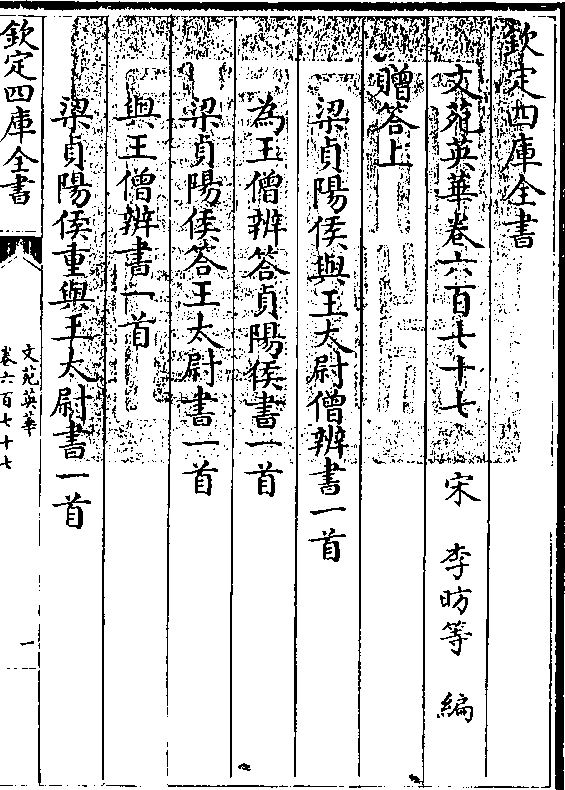 欽定四庫全書
文苑英華卷六百七十七 宋 李昉等 編
贈答上
梁貞陽侯與王太尉僧辨書一首
為王僧辨答貞陽侯書一首
梁貞陽侯答王太尉書一首
與王僧辨書一首
梁貞陽侯重與王太尉書一首
欽定四庫全書
文苑英華
卷六百七十七
一